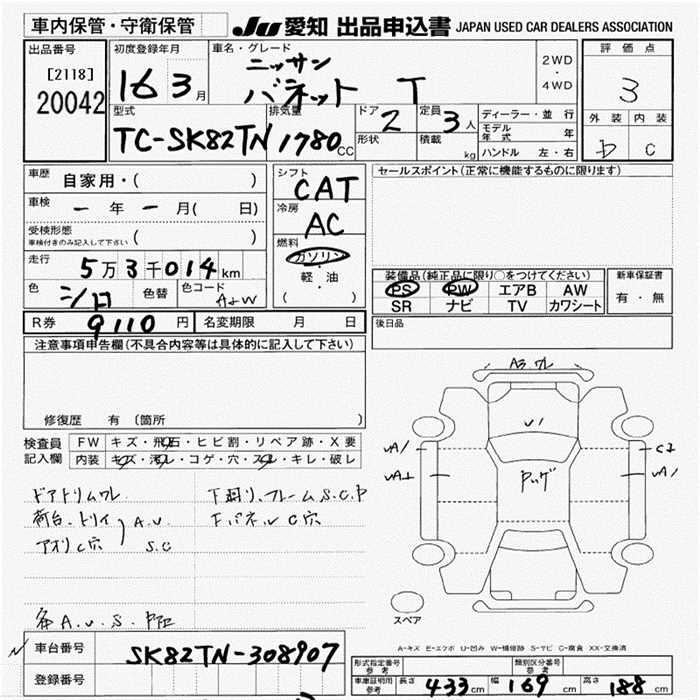 車内保管・守衛保管 JU 愛知 出品申込書 JAPAN USED CAR DEALERS ASSOCIATION
出品番号 初度登録年月 車名・グレード 評価点
[2118] 16 3月 ニッサン 2WD・4WD 3
20042 バネット T 外装 内装
型式 排気量 ドア 定員 ディーラー・並行
TC-SK82TN 1780CC 2 3人 モデル年式 年 C
形状 積載 kg ハンドル 左・右
車歴 自家用・( ) シフト CAT セールスポイント(正常に機能するものに限ります)
車検 一年一月( 日) 冷房 AC
受検形態 ( )
車検付きのみ記入して下さい
燃料 ガソリン
走行 5万3千014km 軽・油
( )
装備品(純正品に限り○をつけてください) 新車保証書
色 シロ 色替 色コード PS PW エアB AW 有・無
SR ナビ TV カワシート
R券 9110円 名変期限 月 日 後日品
注意事項申告欄(不具合内容等は具体的に記入して下さい)
A3 ワレ
修復歴 有 (箇所 )
U1
検査員 FW キズ・飛石・ヒビ割・リペア跡・X要
記入欄 内装 キズ・汚レ・コゲ・穴・スレ・キレ・破レ
ドアトリムワレ 下廻り、フレームS.C.P
荷台.トリイ A.U. FパネルC穴
アオリC穴 S.C
各A.U.S.
スペア
A-キズ E-エクボ U-凹み W-補修跡 S-サビ C-腐食 XX-交換済
車台番号 SK82TN-308907
登録番号
形式指定番号 参考 類別区分番号 参考
車庫証明用 参考 長さ 433cm 幅 169cm 高さ 188cm